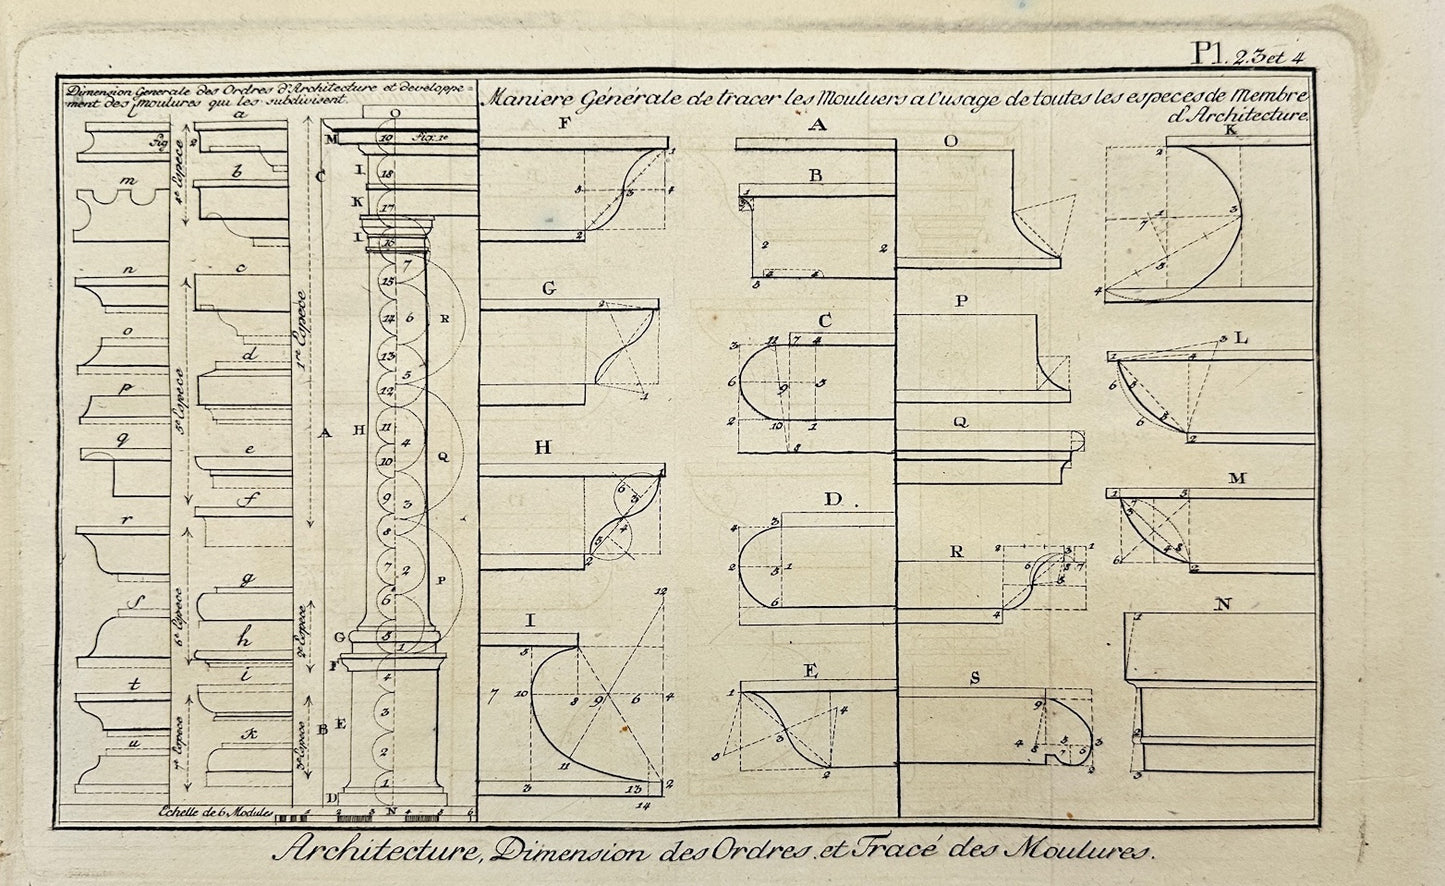 Pl. 2.3 et 4
Dimension Generale des Ordres d'Architecture et developpe=
ment des Moulures qui les subdivisent.
Maniere Générale de tracer les Mouluers a l'usage de toutes les especes de Membre
d'Architecture.
l
a
m
b
n
c
o
d
p
e
q
f
r
g
s
h
t
i
u
k
4e Espece
5e Espece
6e Espece
7e Espece
1re Espece
2e Espece
3e Espece
C
A
B
O
M
Fig. 1e
I
K
L
H
G
F
E
D
N
R
Q
P
19
18
17
16
15
14
13
12
11
10
9
8
7
6
5
4
3
2
1
7
6
5
4
3
2
1
Echelle de 6 Modules
F
G
H
I
A
B
C
D .
E
O
P
Q
R
S
K
L
M
N
Architecture, Dimension des Ordres, et Tracé des Moulures.